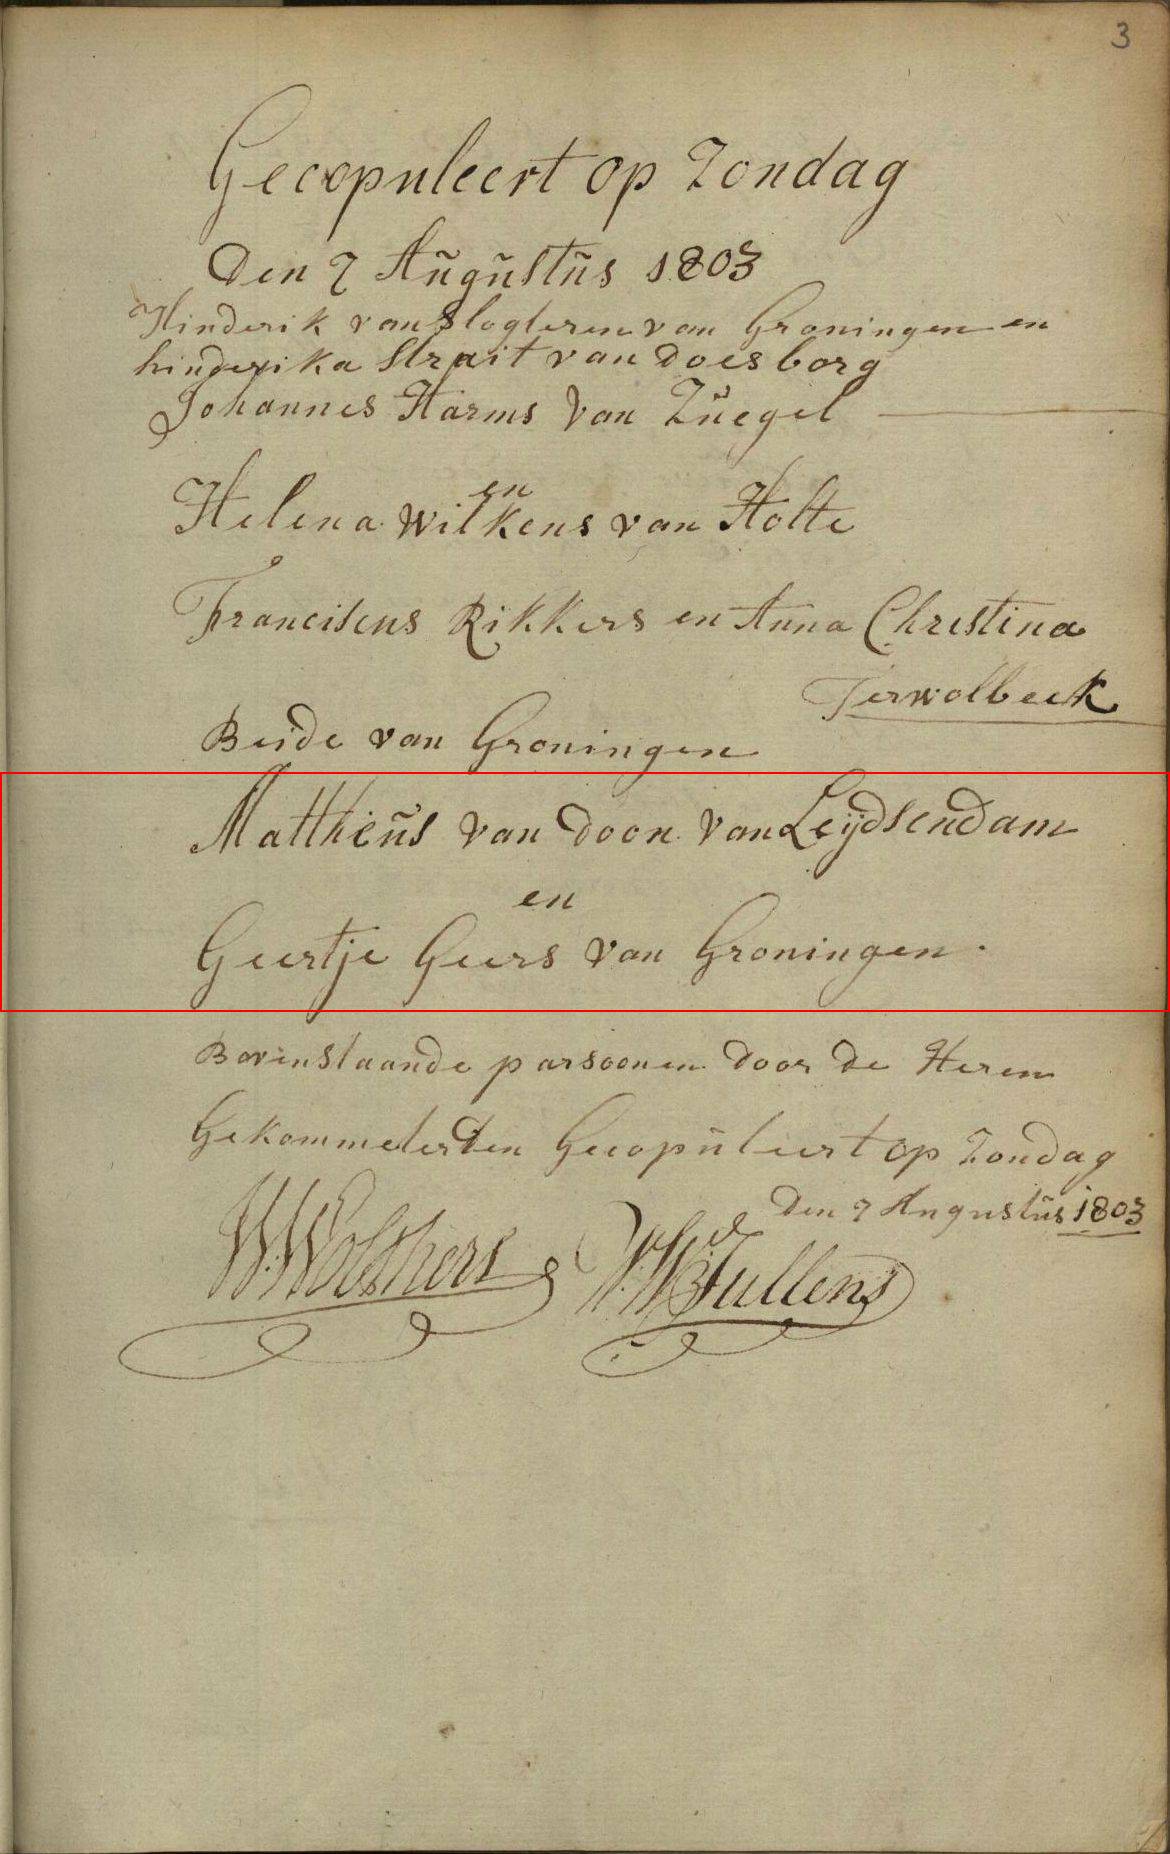 3
Gecopuleert op Zondag
Den 7 Augustus 1803
Hinderik van Slogteren van Groningen en
hinderika Strait van Doesborg
Johannes Harms Van Zuegel
en
Helena Wilkens van Holte
Franciscus Rikkers en Anna Christina
Terwolbeek
Beide van Groningen
Mattheus van Doon van Leijdsendam
en
Geertje Geers van Groningen.
Bovenstaande parsoonen door de Heren
Gekommeterden Gecopuleert op Zondag
Den 7 Augustus 1803
W: Wolthers
Tullens